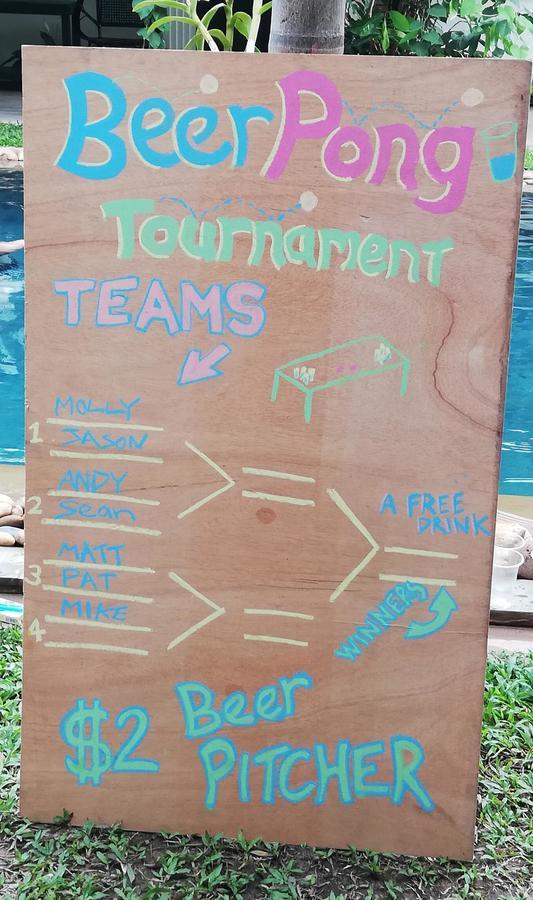 Beer Pong
Tournament
TEAMS
MOLLY
1 JASON
ANDY
2 Sean
MATT
3 PAT
MIKE
4
A FREE
DRINK
WINNERS
$2 Beer
PITCHER